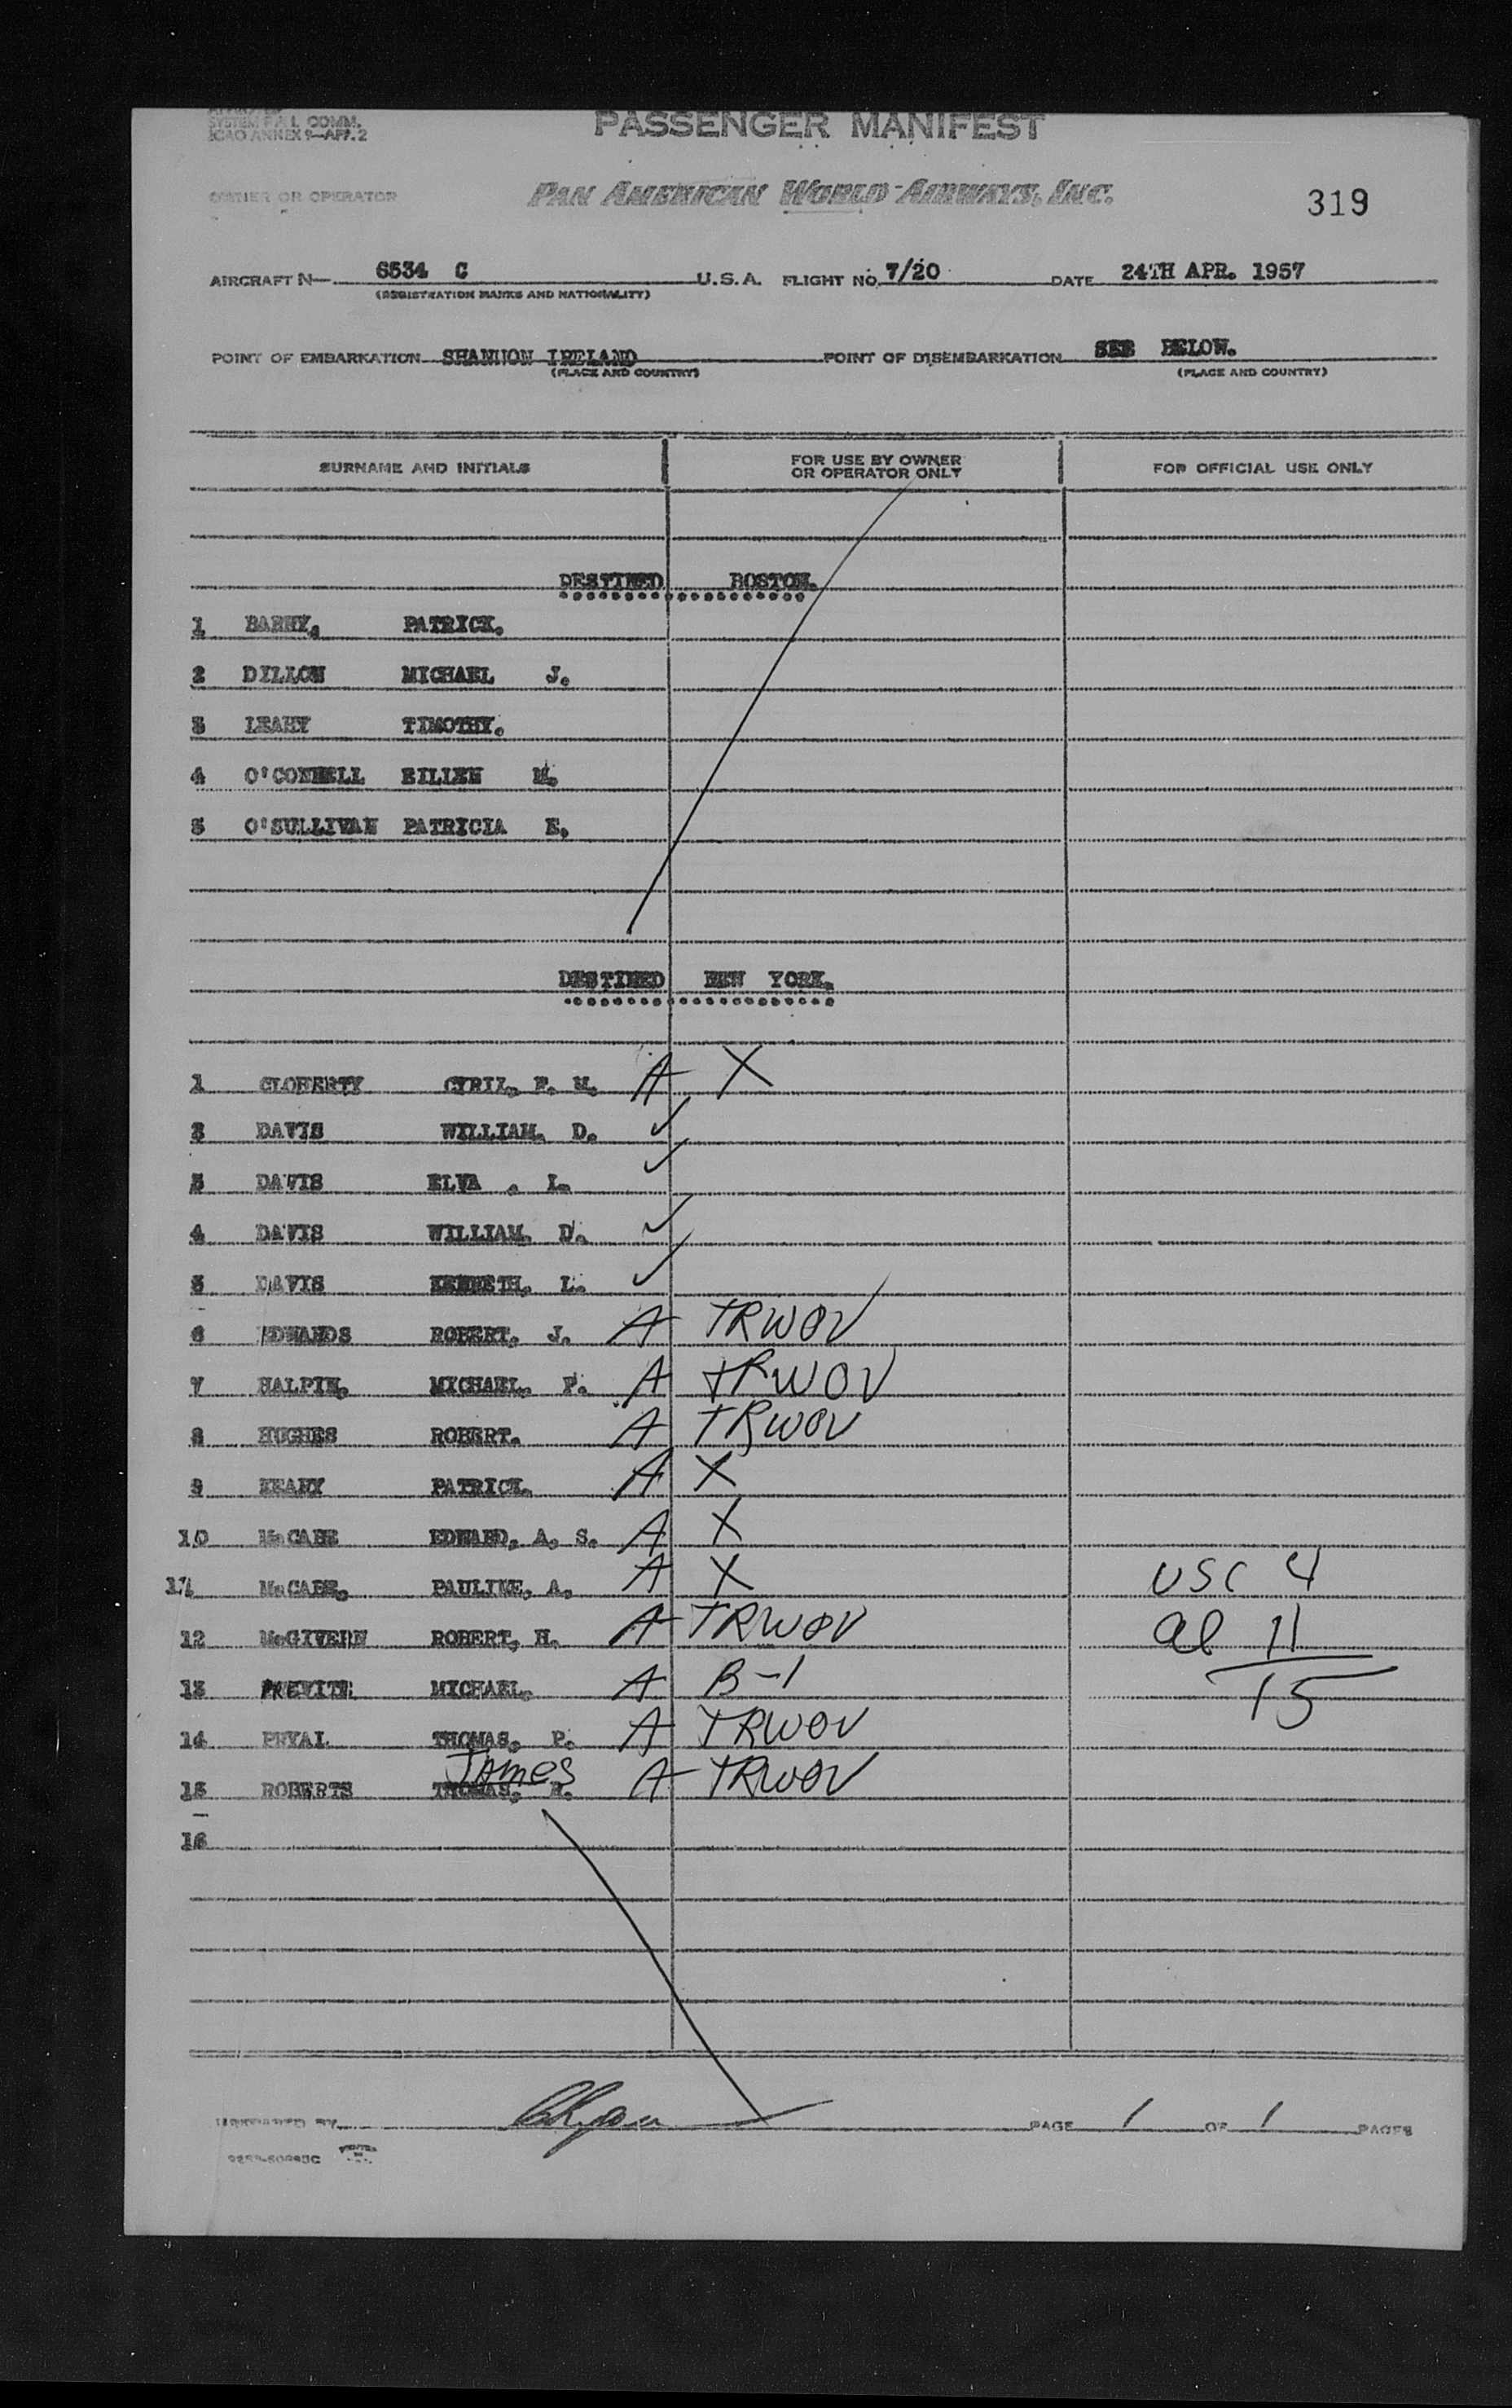 SYSTEM FAL COMM.
ICAO ANNEX 9—APP. 2
PASSENGER MANIFEST
OWNER OR OPERATOR PAN AMERICAN WORLD AIRWAYS, INC. 319
AIRCRAFT N— 6534 C U.S.A. FLIGHT NO. 7/20 DATE 24TH APR. 1957
(REGISTRATION MARKS AND NATIONALITY)
POINT OF EMBARKATION SHANNON IRELAND POINT OF DISEMBARKATION SEE BELOW.
(PLACE AND COUNTRY) (PLACE AND COUNTRY)
SURNAME AND INITIALS FOR USE BY OWNER OR OPERATOR ONLY FOR OFFICIAL USE ONLY
DESTINED BOSTON.
1 BARRY, PATRICK.
2 DILLON MICHAEL J.
3 LEAHY TIMOTHY.
4 O'CONNELL EILLEN M.
5 O'SULLIVAN PATRICIA E.
DESTINED NEW YORK.
1 CLOHERTY CYRIL, F. M. A X
2 DAVIS WILLIAM. D. ✓
3 DAVIS ELVA . L. ✓
4 DAVIS WILLIAM. D. ✓
5 DAVIS KENNETH. L. ✓
6 EDWARDS ROBERT. J. A TRWOV
7 HALPIN, MICHAEL, F. A TRWOV
8 HUGHES ROBERT. A TRWOV
9 KEARY PATRICK. A X
10 McCABE EDWARD, A. S. A X
11 McCABE, PAULINE, A. A X USC 4
12 McGIVERN ROBERT, H. A TRWOV al 11
13 PREVITE MICHAEL. A B-1 15
14 PHYAL THOMAS, P. A TRWOV
James
15 ROBERTS THOMAS, H. A TRWOV
16
PREPARED BY PAGE 1 OF 1 PAGES